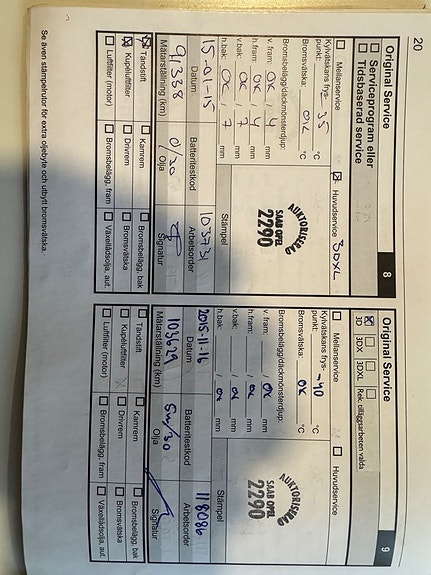 20
Original Service
8
Serviceprogram eller
Tidsbaserad service
Mellanservice
Huvudservice 3DXL
Kylvätskans frys-
punkt: 35 °C
Bromsvätska: OK °C
Bromsbelägg/däckmönsterdjup:
v. fram: OK / 4 mm
h. fram: OK / 4 mm
v. bak: OK / 7 mm
h. bak: OK / 7 mm
AUKTORISERAD
SAAB OPEL
2290
Stämpel
15-01-15
103731
Datum
Batteritestkod
Arbetsorder
91338
0/30
Mätarställning (km)
Olja
Signatur
Tändstift
Kamrem
Bromsbelägg, bak
Kupéluftfilter
Drivrem
Bromsvätska
Luftfilter (motor)
Bromsbelägg, fram
Växellådsolja, aut.
Se även stämpelrutor för extra oljebyte och utbytt bromsvätska.
Original Service
9
3D
3DX
3DXL
Rek. tilläggsarbeten valda
Mellanservice
Huvudservice
Kylvätskans frys-
punkt: -40 °C
Bromsvätska: OK °C
Bromsbelägg/däckmönsterdjup:
v. fram: / OK mm
h. fram: / OK mm
v. bak: / OK mm
h. bak: / OK mm
AUKTORISERAD
SAAB OPEL
2290
Stämpel
2015-11-16
118086
Datum
Batteritestkod
Arbetsorder
103679
5W/30
Mätarställning (km)
Olja
Signatur
Tändstift
Kamrem
Bromsbelägg, bak
Kupéluftfilter
Drivrem
Bromsvätska
Luftfilter (motor)
Bromsbelägg, fram
Växellådsolja, aut.